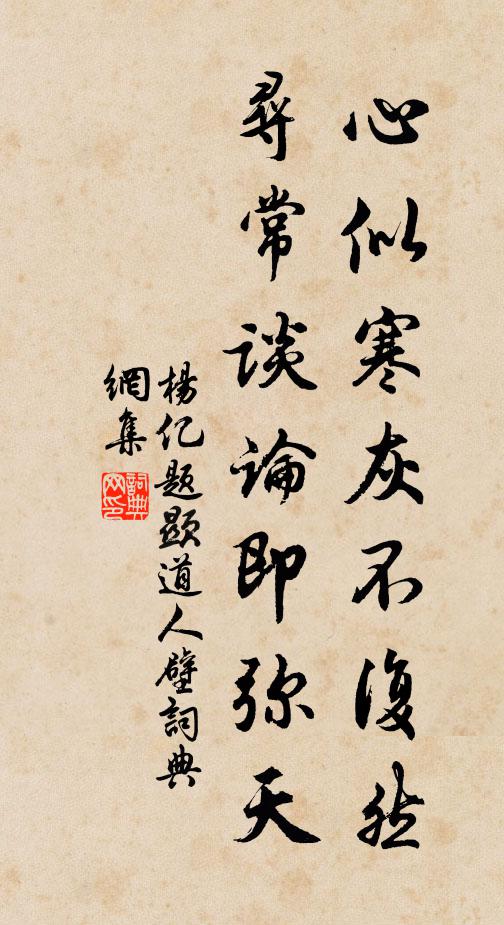 心似寒灰不復然
尋常談論即弥天
楊億題顯道人壁詞典
網集
詞典
网印